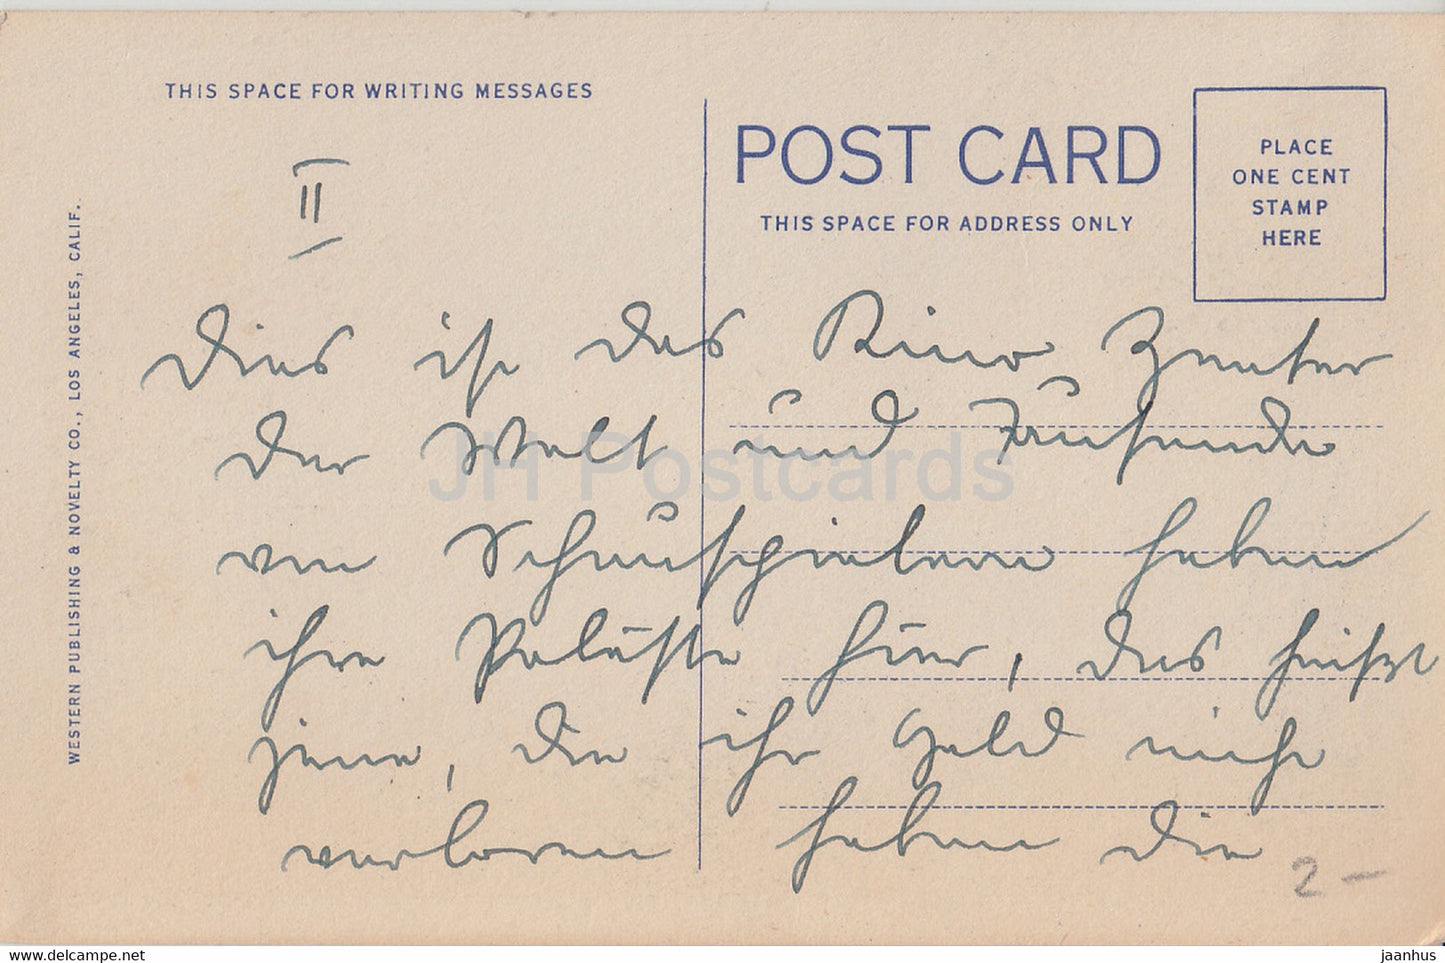 THIS SPACE FOR WRITING MESSAGES
POST CARD
THIS SPACE FOR ADDRESS ONLY
PLACE
ONE CENT
STAMP
HERE
WESTERN PUBLISHING & NOVELTY CO., LOS ANGELES, CALIF.
II
Dies ist das Kino Zenter
der Welt und Tausende
von Schauspielern haben
ihre Paläste hier, das heißt
jene, die ihr Geld nicht
verloren haben die
2 -
JH Postcards
www.hippostcard.com
jaanhus